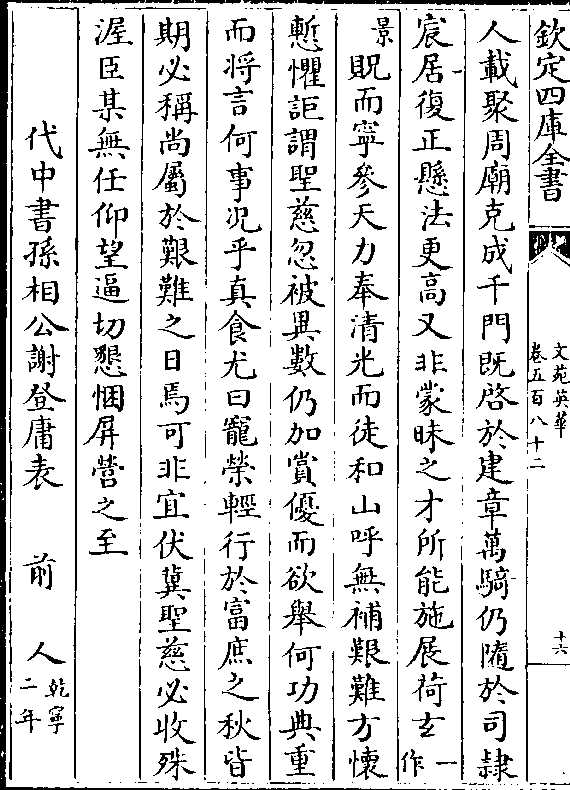 欽定四庫全書
文苑英華
卷五百八十二
十六
人載聚周廟克成千門既啓於建章萬騎仍隨於司隸
宸居復正懸法更高又非蒙昧之才所能施展荷玄一作
景貺而寧參天力奉清光而徒和山呼無補艱難方懷
慙懼詎謂聖慈忽被異數仍加賞優而欲舉何功典重
而将言何事况乎真食尤曰寵榮輕行於富庶之秋皆
期必稱尚屬於艱難之日焉可非宜伏冀聖慈必收殊
渥臣某無任仰望逼切懇悃屏營之至
代中書孫相公謝登庸表　前人乾寧二年